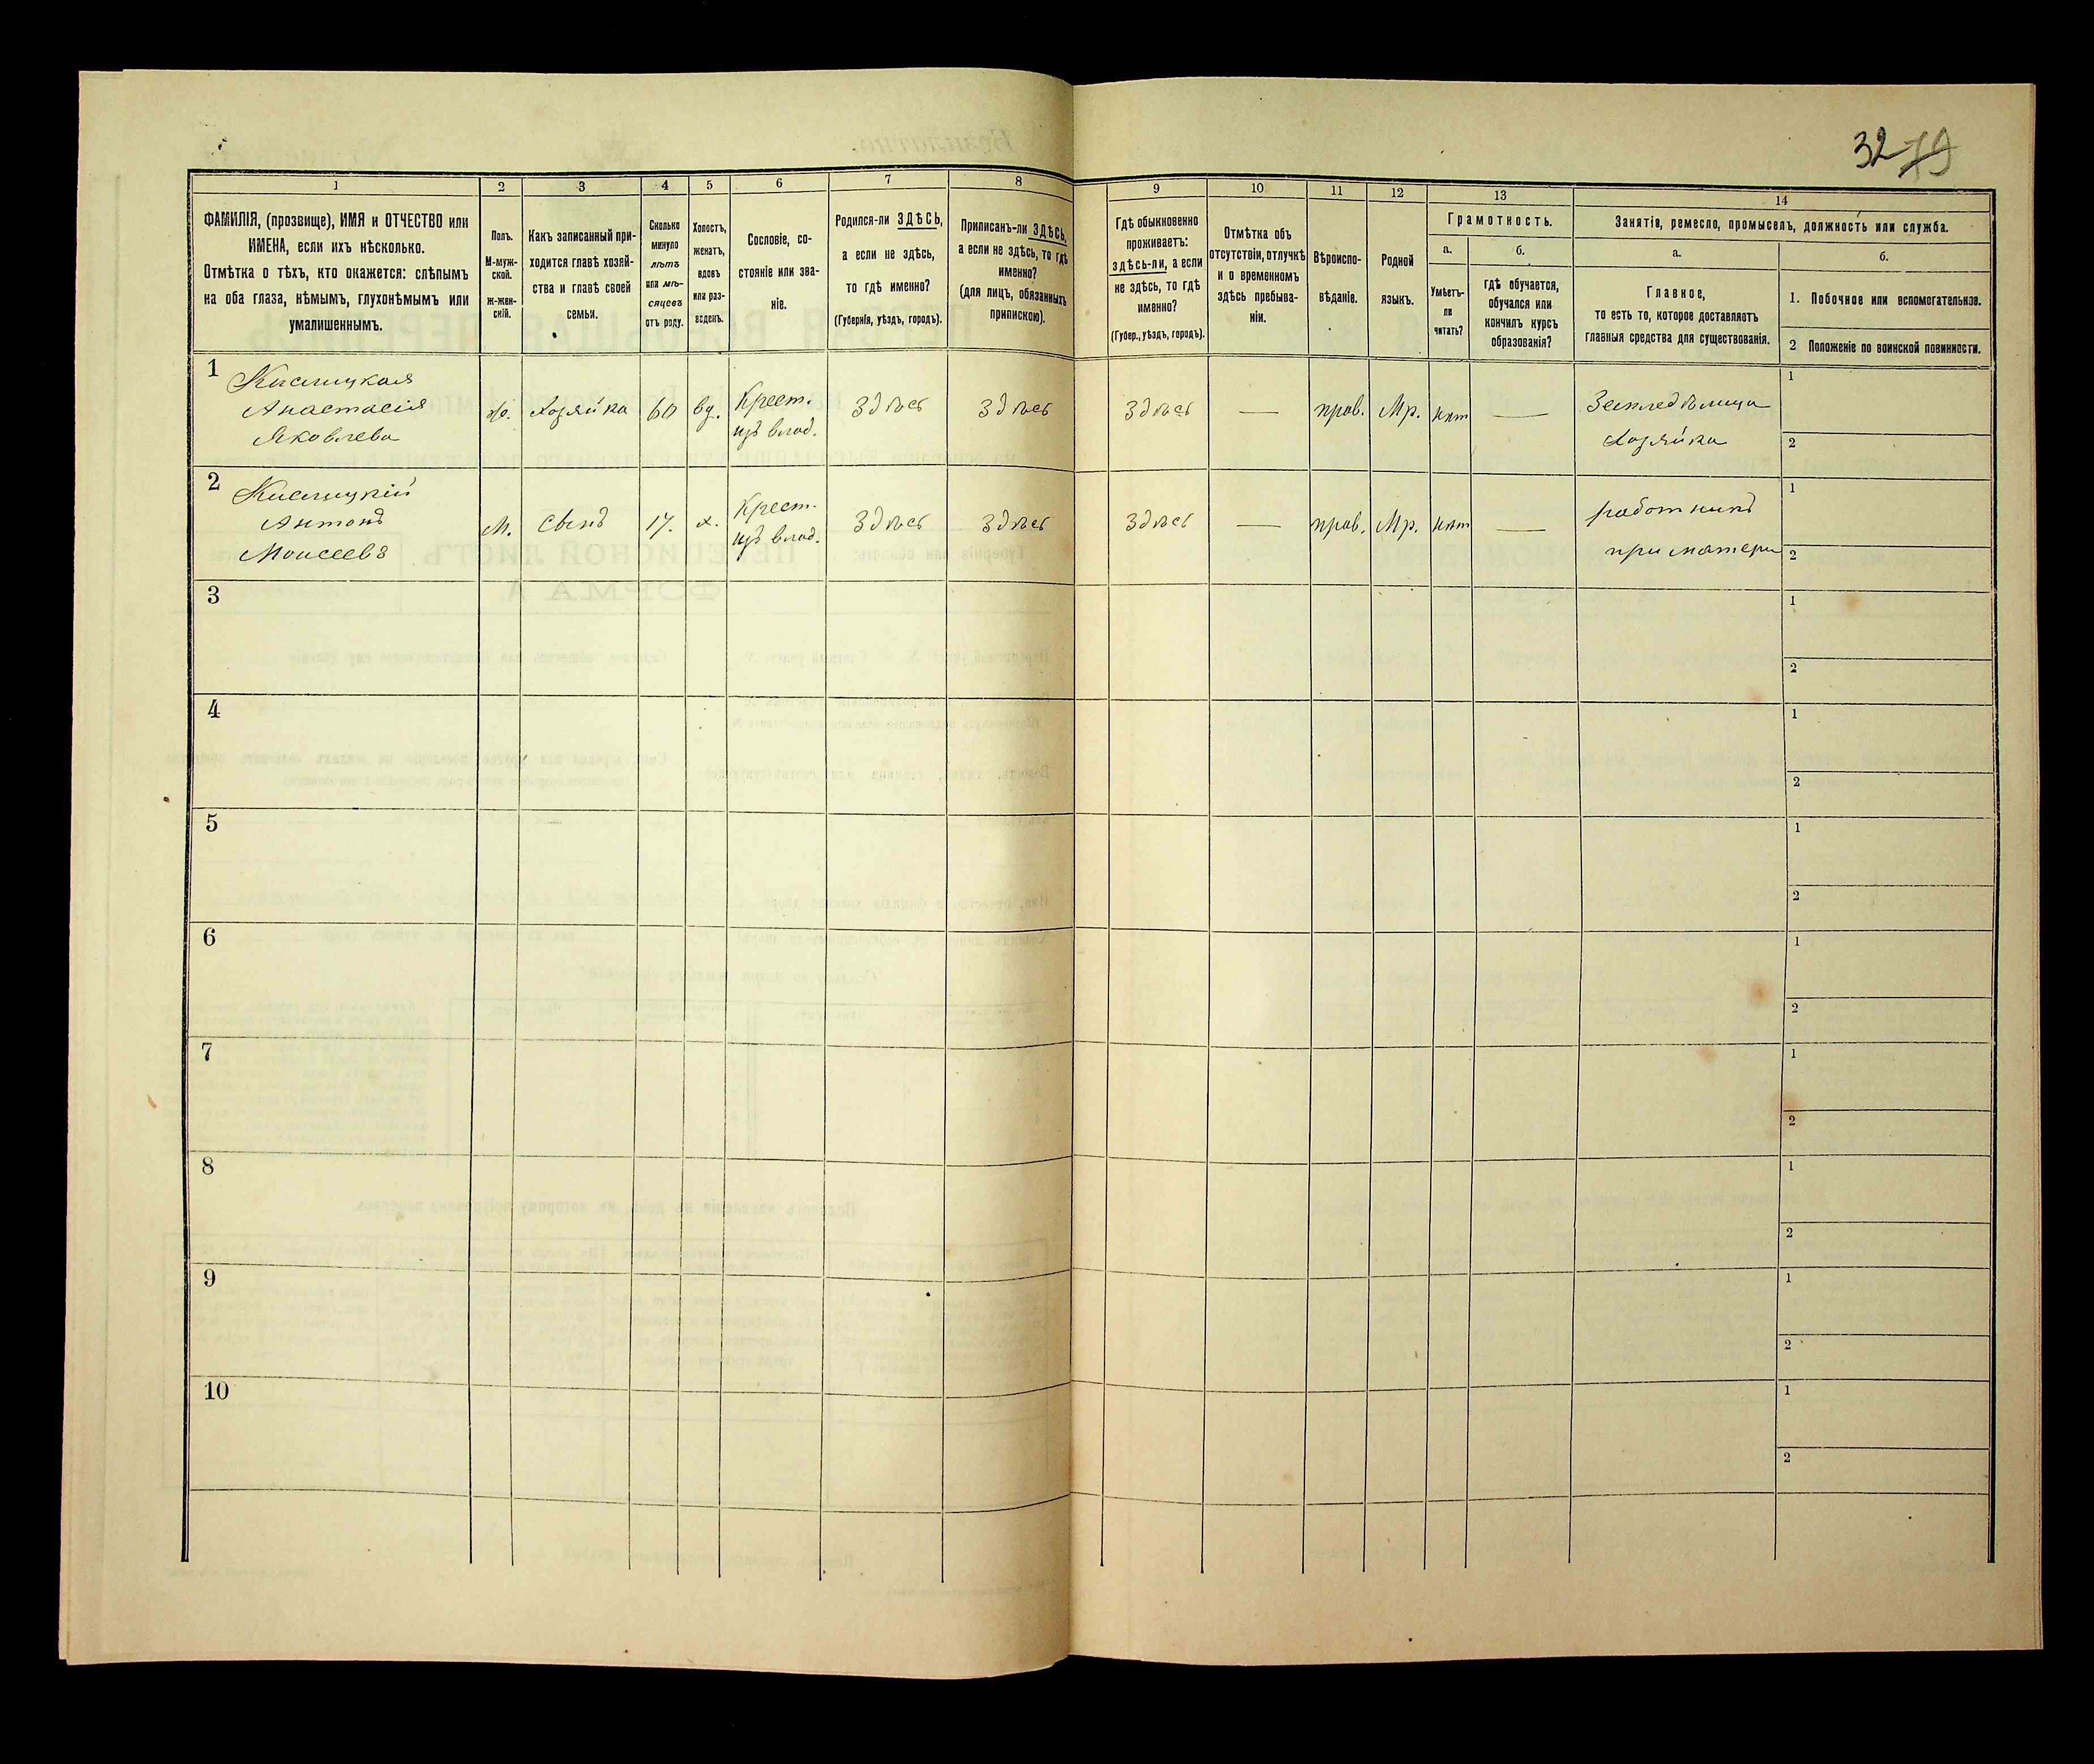 32 79
1
2
3
4
5
6
7
8
9
10
11
12
13
14
ФАМИЛІЯ, (прозвище), ИМЯ и ОТЧЕСТВО или
ИМЕНА, если ихъ нѣсколько.
Отмѣтка о тѣхъ, кто окажется: слѣпымъ
на оба глаза, нѣмымъ, глухонѣмымъ или
умалишеннымъ.
Полъ.
М-муж-
ской.
ж-жен-
скій.
Какъ записанный при-
ходится главѣ хозяй-
ства и главѣ своей
семьи.
Сколько
минуло
лѣтъ
или мѣ-
сяцевъ
отъ роду.
Холостъ,
женатъ,
вдовъ
или раз-
веденъ.
Сословіе, со-
стояніе или зва-
ніе.
Родился-ли ЗДѢСЬ,
а если не здѣсь,
то гдѣ именно?
(Губернія, уѣздъ, городъ).
Приписанъ-ли ЗДѢСЬ,
а если не здѣсь, то гдѣ
именно?
(для лицъ, обязанныхъ
припискою).
Гдѣ обыкновенно
проживаетъ:
здѣсь-ли, а если
не здѣсь, то гдѣ
именно?
(Губер., уѣздъ, городъ).
Отмѣтка объ
отсутствіи, отлучкѣ
и о временномъ
здѣсь пребыва-
ніи.
Вѣроиспо-
вѣданіе.
Родной
языкъ.
Грамотность.
а.
Умѣетъ-
ли
читать?
б.
гдѣ обучается,
обучался или
кончилъ курсъ
образованія?
Занятія, ремесло, промыселъ, должность или служба.
а.
Главное,
то есть то, которое доставляетъ
главныя средства для существованія.
б.
1. Побочное или вспомогательное.
2 Положеніе по воинской повинности.
1
Кислицкая
Анастасія
Яковлева
ж.
хозяйка
60
вд.
Крест.
изъ влад.
Здѣсь
Здѣсь
Здѣсь
—
прав.
Мр.
нѣт
—
Земледѣлица
хозяйка
1
2
2
Кислицкій
Антонъ
Моисеевъ
М.
сынъ
17.
х.
Крест.
изъ влад.
Здѣсь
Здѣсь
Здѣсь
—
прав.
Мр.
нѣт
—
работникъ
при матери
1
2
3
1
2
4
1
2
5
1
2
6
1
2
7
1
2
8
1
2
9
1
2
10
1
2